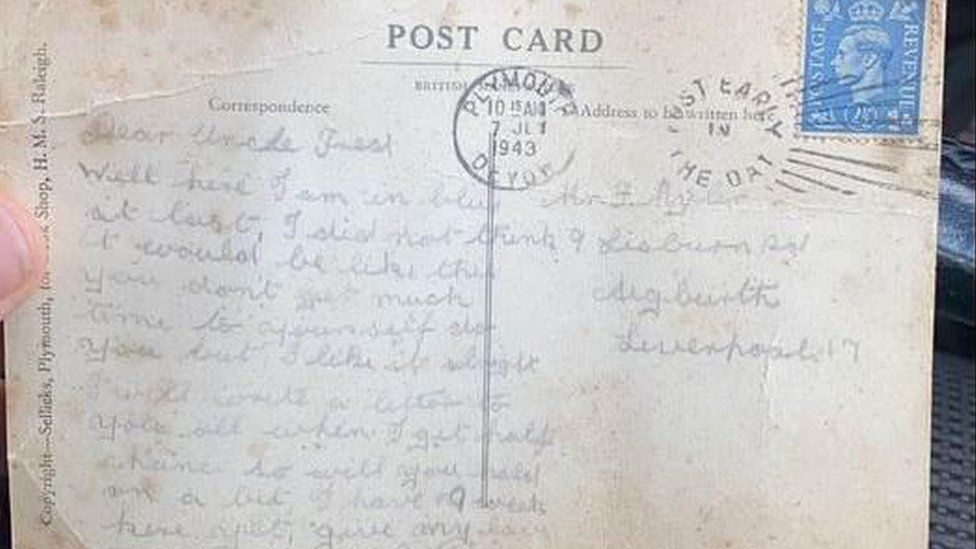 POST CARD
BRITISH
Correspondence
Address to be written here
PLYMOUTH
10 15 AM
7 JL
1943
DEVON
POST EARLY
IN
THE DAY
POSTAGE
REVENUE
Dear Uncle Fred
Well here I am in blue
at last, I did not think
it would be like this
you dont get much
time to yourself do
you but I like it alright
I will write a letter to
you all when I get half
chance so will you hold
on a bit, I have 9 week
here yet, give my
Mr F
9 Lisburn Rd
Aigburth
Liverpool 17
Copyright—Sellicks, Plymouth, Shop, H.M.S. Raleigh.